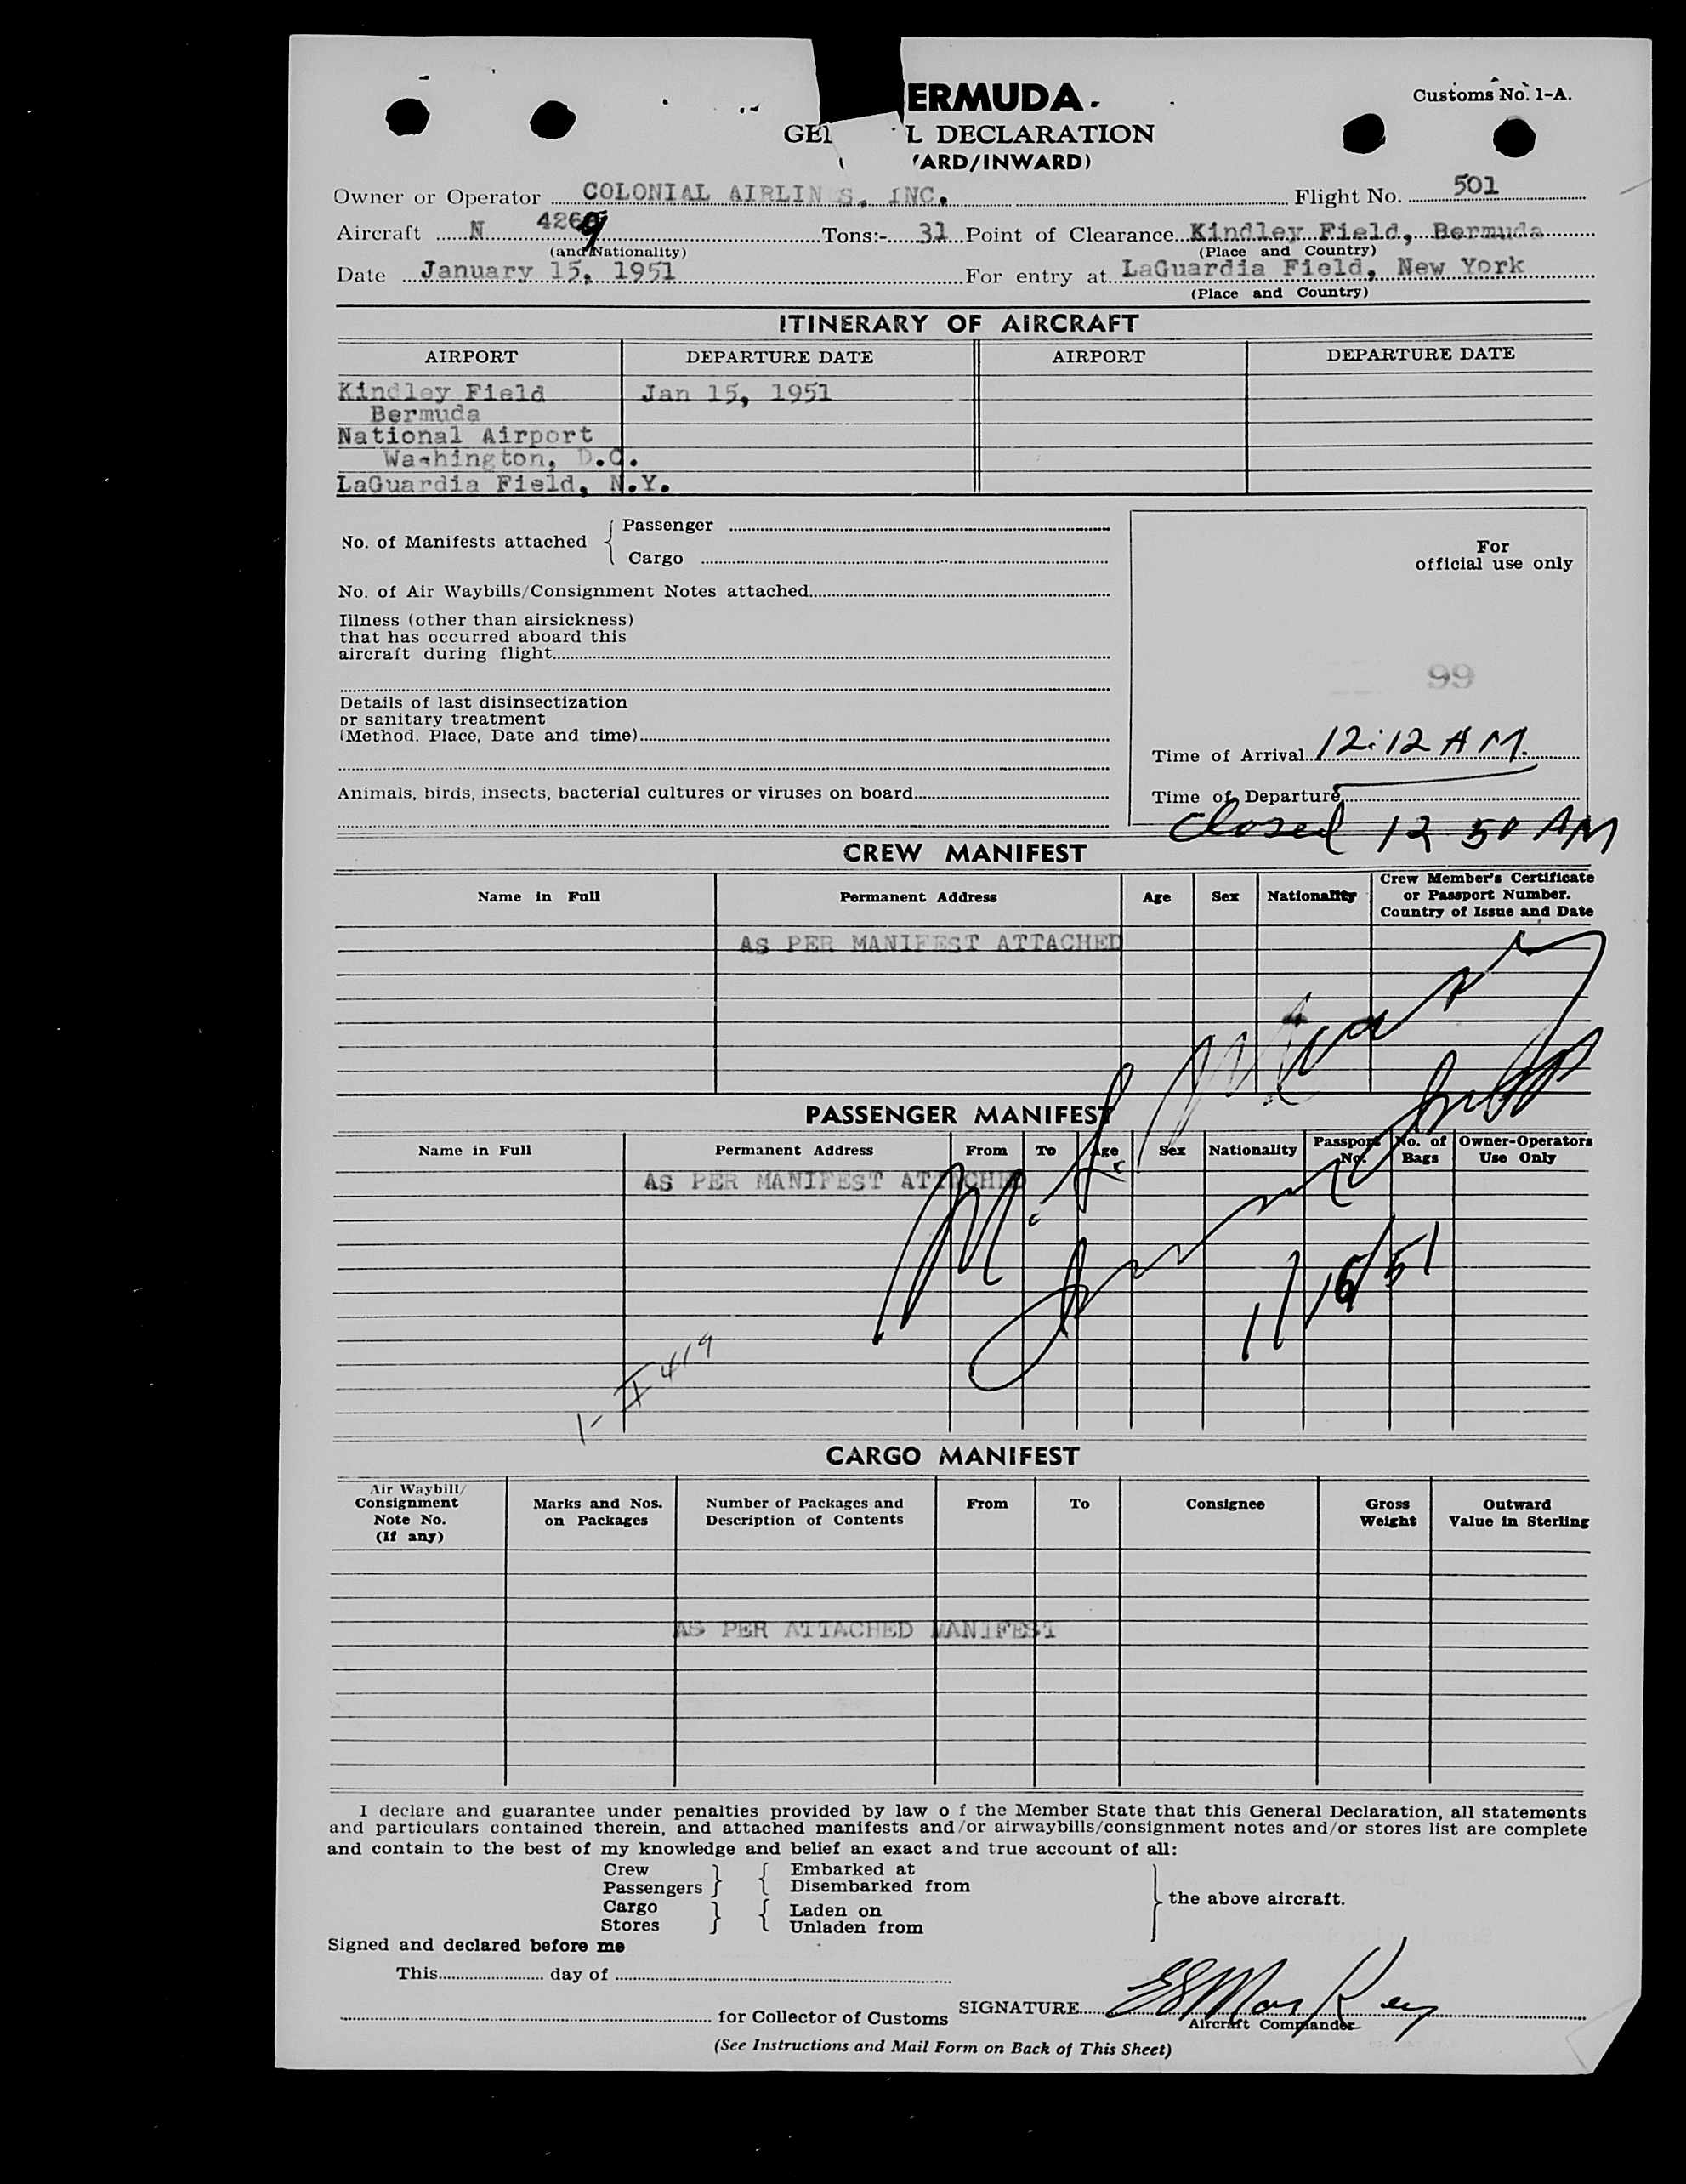 ERMUDA.
Customs No. 1-A.
GE L DECLARATION
ARD/INWARD)
Owner or Operator COLONIAL AIRLIN S, INC. Flight No. 501
Aircraft N 4269 Tons:- 31 Point of Clearance Kindley Field, Bermuda
(and Nationality) (Place and Country)
Date January 15, 1951 For entry at LaGuardia Field, New York
(Place and Country)
ITINERARY OF AIRCRAFT
AIRPORT DEPARTURE DATE AIRPORT DEPARTURE DATE
Kindley Field Jan 15, 1951
Bermuda
National Airport
Washington, D.C.
LaGuardia Field, N.Y.
No. of Manifests attached { Passenger
Cargo
No. of Air Waybills/Consignment Notes attached
Illness (other than airsickness)
that has occurred aboard this
aircraft during flight
Details of last disinsectization
or sanitary treatment
(Method. Place, Date and time)
Animals, birds, insects, bacterial cultures or viruses on board
For
official use only
99
Time of Arrival 12:12 AM.
Time of Departure
Closed 12 50 AM
CREW MANIFEST
Name in Full Permanent Address Age Sex Nationality Crew Member's Certificate
or Passport Number.
Country of Issue and Date
AS PER MANIFEST ATTACHED
PASSENGER MANIFEST
Name in Full Permanent Address From To Age Sex Nationality Passport No. No. of Bags Owner-Operators Use Only
AS PER MANIFEST ATTACHED
1/16/51
1- II 419
CARGO MANIFEST
Air Waybill/
Consignment
Note No.
(If any)
Marks and Nos.
on Packages
Number of Packages and
Description of Contents
From To Consignee
Gross
Weight
Outward
Value in Sterling
AS PER ATTACHED MANIFEST
I declare and guarantee under penalties provided by law o f the Member State that this General Declaration, all statements
and particulars contained therein, and attached manifests and/or airwaybills/consignment notes and/or stores list are complete
and contain to the best of my knowledge and belief an exact and true account of all:
Crew } { Embarked at
Passengers } { Disembarked from
Cargo } { Laden on
Stores } { Unladen from
} the above aircraft.
Signed and declared before me
This day of
for Collector of Customs SIGNATURE
Aircraft Commander
(See Instructions and Mail Form on Back of This Sheet)